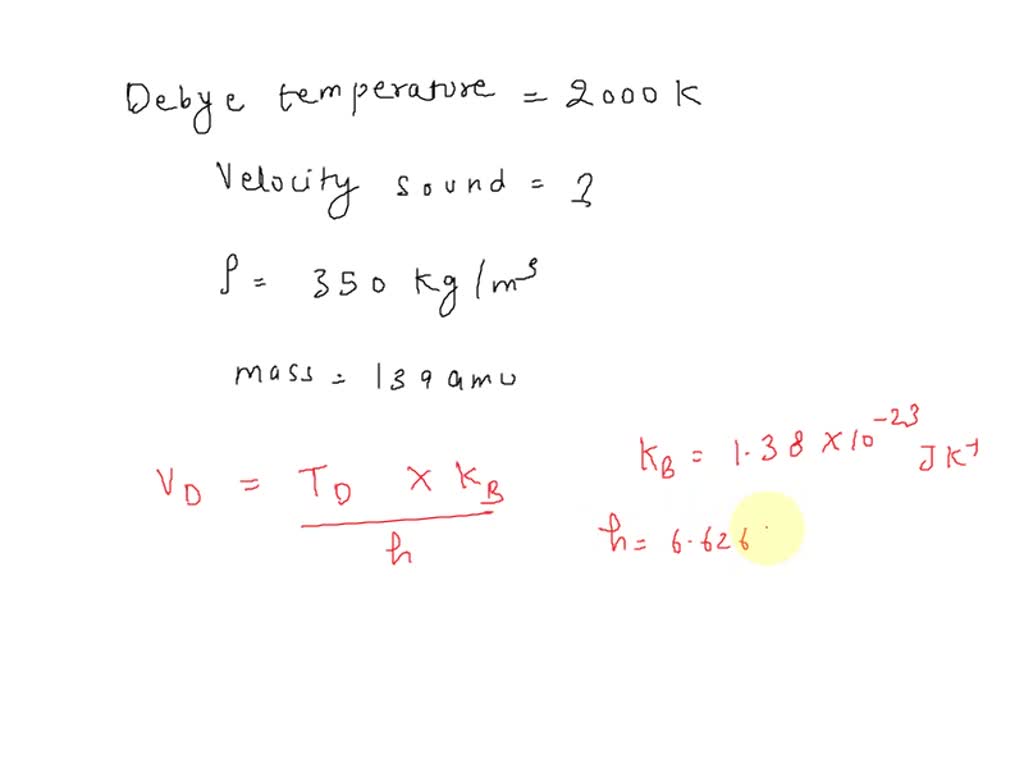 Debye temperature = 2000 K
Velocity sound = ?
ρ = 350 kg/m³
mass = 139 amu
ν_D = T_D × K_B / h
K_B = 1.38 × 10⁻²³ J K⁻¹
h = 6.626